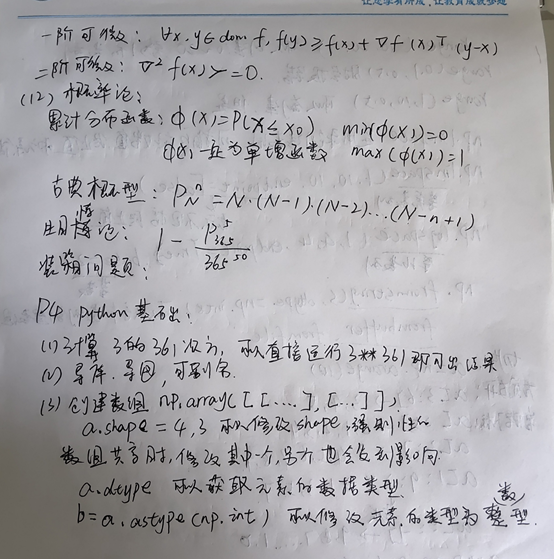 让您享有所成,让教育成就梦想
一阶可微: ∀x,y∈dom f, f(y)≥f(x)+∇f(x)ᵀ(y-x)
二阶可微: ∇²f(x)>=0.
(12) 概率论:
累计分布函数: φ(x)=P(x≤x₀) min(φ(x))=0
φ(x)一定为单增函数 max(φ(x))=1
古典概型: P_N^n=N·(N-1)·(N-2)...(N-n+1)
生日悖论: 1 - P_365^5 / 365^50
装箱问题:
P4 python 基础:
(1) 计算 3的361次方, 可以直接运行 3**361 即可出结果
(2) 导库.导包,可别名.
(3) 创建数组 np.array([[....],[...]]).
a.shape = 4,3 可以修改shape,强制性的
数组共享时,修改其中一个,另一个也会受到影响
a.dtype 可以获取元素的数据类型.
b=a.astype(np.int) 可以修改元素的类型为整数型.